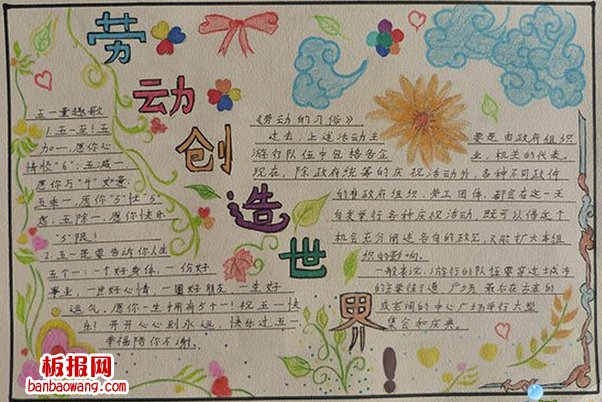 劳动创造世界！
五一童趣歌
1.五一至!五
加一,愿你心
情愉“6”;五减一
愿你万“4”如意;
五乘一,愿你“5”忧“5”
愁;五除一,愿你快乐
“5”限!
2.五一是要告诉你人生
五个一:一个好身体,一份好
事业,一片好心情,一圈好朋友,一生好
运气,愿你一生拥有5个一!祝五一快
乐!开开心心到永远,快乐过五一
幸福陪你不
《劳动的习俗》
过去,上述活动主 要是由政府组织
游行队伍中包括各企 业,机关的代表。
现在,除政府统筹的庆祝活动外,各种不同政件
的非政府组织,劳工团体,都会在这一天
自发举行各种庆祝活动,既可以借这个
机会充分阐述各自的政见,又能扩大本组
织的影响。
一般来说,游行的队伍要穿过城市
的主要街道,广场,最后在古老的
或宽阔的中心广场举行大型
集会和庆典。
板报网
banbaowang.com